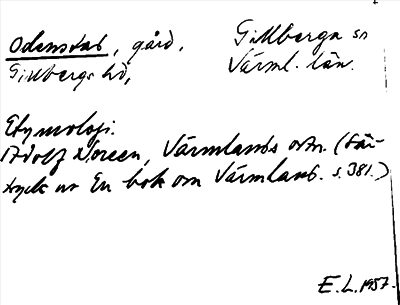 Odenstad, gård, Gillberga sn
Gillbergs hd, Värml. län.
Etymologi.
Adolf Noreen, Värmlands ortn. (Sär-
tryck ur En bok om Värmland. s. 381.)
E. L. 1957.